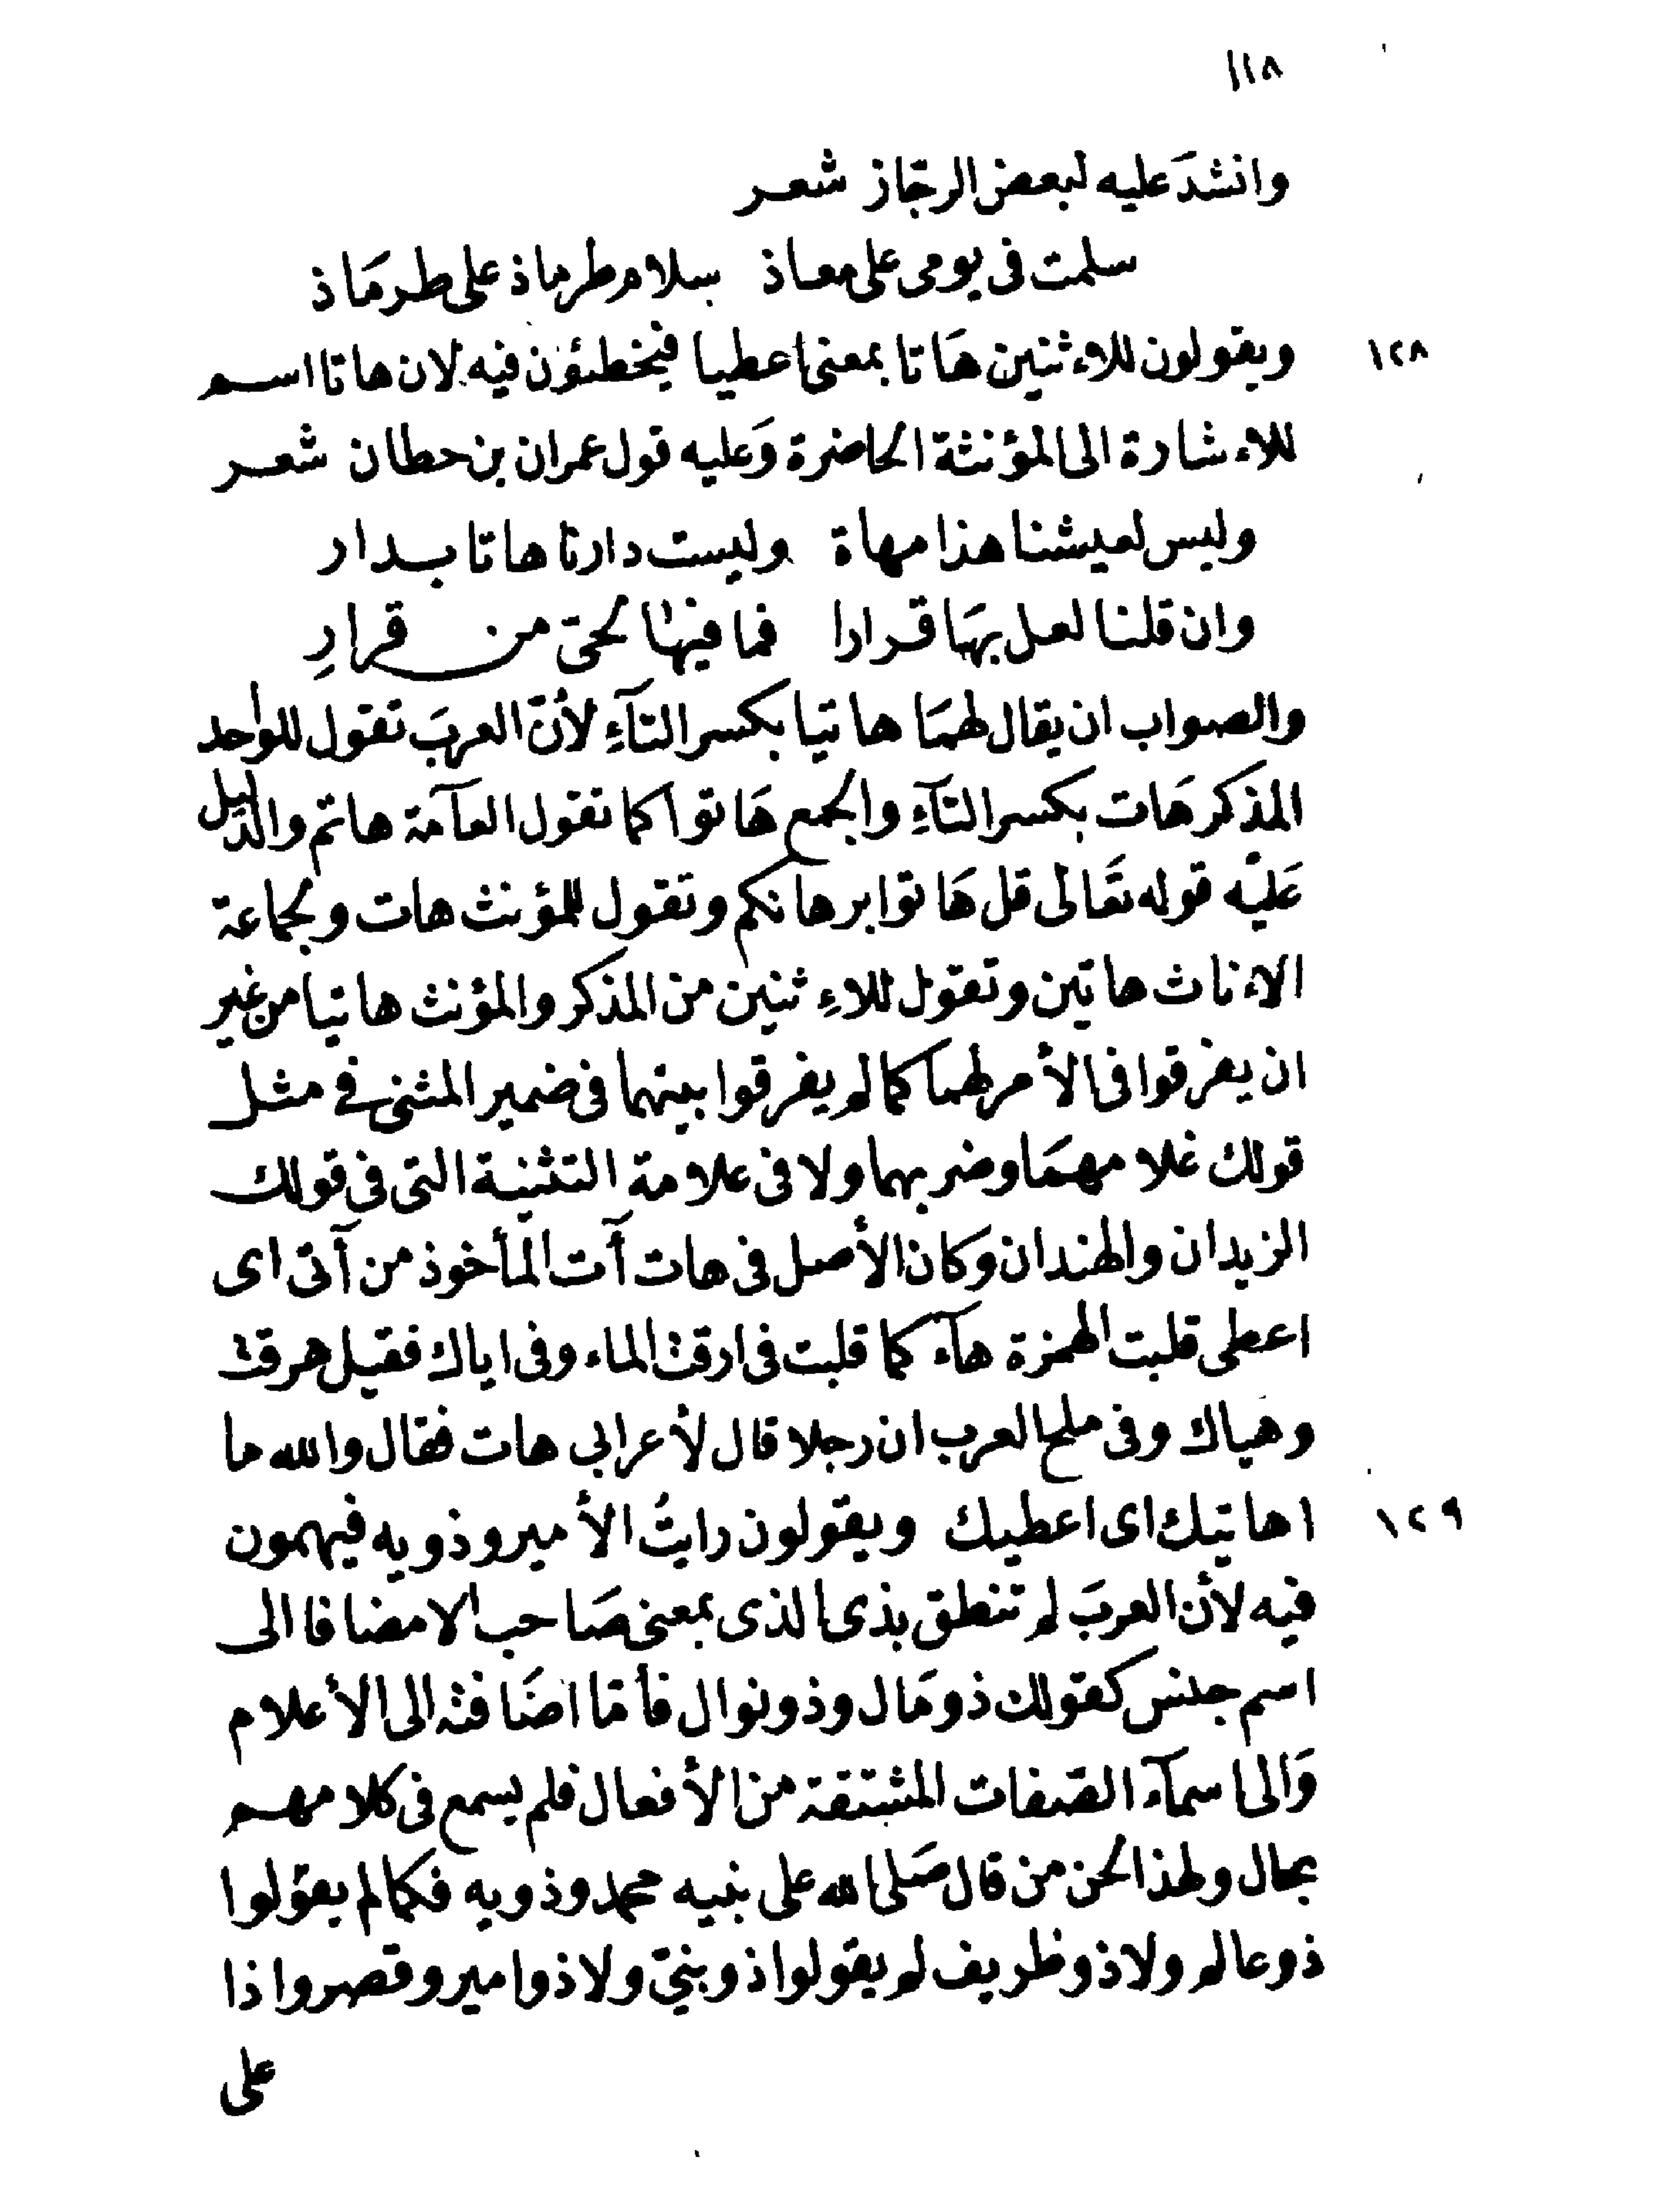 ١١٨
وانشدَ عليه لبعض الرجّاز شعر
سلمت فى يومى على معاذ سلام طرماذ على طرمَاذ
١٢٨ ويقولون للاءثنين هَاتا بمعنى اعطيا فيخطئؤن فيه لان هاتا اسم
للاءشارة الى المؤنثة الحاضرة وَعليه قول عمران بن حطان شعر
وليس لعيشنا هذا مهاة وليست دارنا هاتا بدار
وان قلنا لعل بهَا قرارا فما فيها لحىّ من قرارِ
والصواب ان يقال لهمَا هاتيا بكسر التآءِ لأنّ العربَ تقول للواحد
المذكر هَات بكسر التآءِ والجمع هَاتوا كما تقول العآمَة هاتم والدّليل
عَليْه قوله تعَالى قل هَاتوا برهانكم وتقول للمؤنث هات ولجماعة
الاءناث هاتين وتقول للاءِثنين من المذكر والمؤنث هاتيا من غير
ان يفرقوا فى الأمر لهما كما لم يفرقوا بينهما فى ضمير المثنى فى مثل
قولك غلامهمَا وضربهما ولا فى علامة التثنية التى فى قولك
الزيدان والهندان وكان الأصل فى هات آت المأخوذ من آتى اى
اعطى قلبت الهمزة هآء كما قلبت فى ارقت الماء وفى اياك فقيل هرقت
وهَياك وفى ملح العرب ان رجلا قال لأعرابى هات فقال والله ما
١٢٩ اهاتيك اى اعطيك ويقولون رايتُ الأمير وذويه فيهمون
فيه لأن العربَ لم تنطق بذى الذى بمعنى صَاحب الا مضافا الى
اسم جنس كقولك ذو مَال وذو نوال فأمّا اضَافته الى الأعلام
وَالى اسمآء الصّفات المشتقة من الأفعال فلم يسمع فى كلامهم
بحال ولهذا لحن من قال صَلى الله على نبيه محمد وذويه فكما لم يقولوا
ذو عالم ولا ذو ظريف لم يقولوا ذو نبىّ ولا ذو امير وقصروا ذا
على